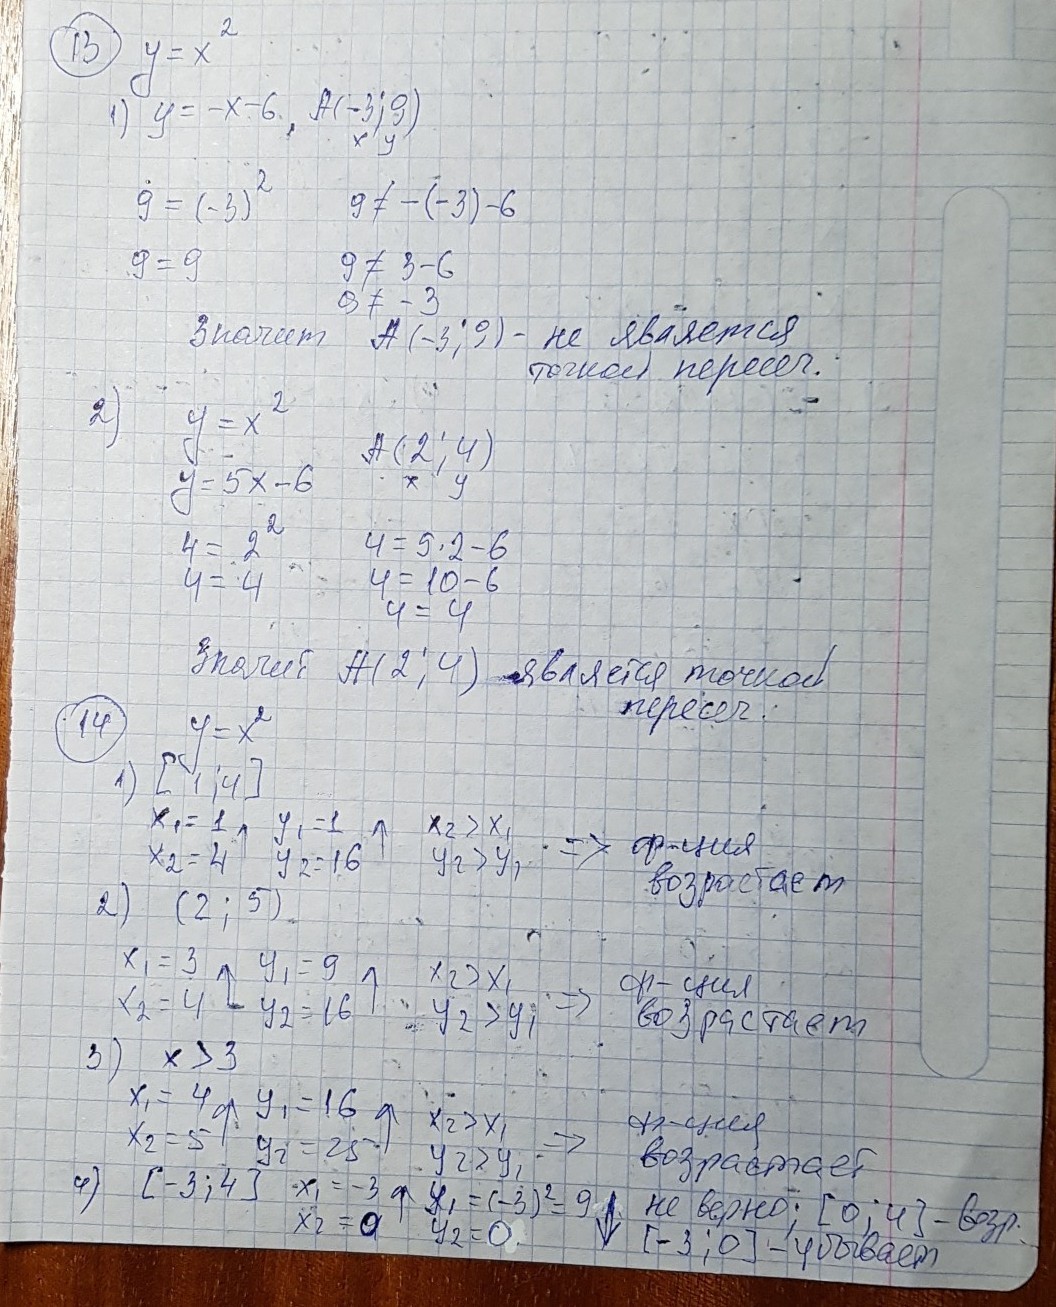 13 y = x²
1) y = -x-6, A(-3;9)
x y
9 = (-3)² 9 ≠ -(-3)-6
9 = 9 9 ≠ 3-6
9 ≠ -3
Значит A(-3;9) - не является
точкой пересеч.
2) y = x²
A(2;4)
y = 5x-6 x y
4 = 2² 4 = 5·2-6
4 = 4 4 = 10-6
4 = 4
Значит A(2;4) является точкой
пересеч.
14 y = x²
1) [1;4]
x₁ = 1 ↑ y₁ = 1 ↑ x₂ > x₁ => ф-ция
x₂ = 4 y₂ = 16 y₂ > y₁ возрастает
2) (2;5)
x₁ = 3 ↑ y₁ = 9 ↑ x₂ > x₁ => ф-ция
x₂ = 4 y₂ = 16 y₂ > y₁ возрастает
3) x > 3
x₁ = 4 ↑ y₁ = 16 ↑ x₂ > x₁ => ф-ция
x₂ = 5 y₂ = 25 y₂ > y₁ возрастает
4) [-3;4] x₁ = -3 ↑ y₁ = (-3)² = 9 ↓ не верно; [0;4] - возр.
x₂ = 0 y₂ = 0 [-3;0] - убывает